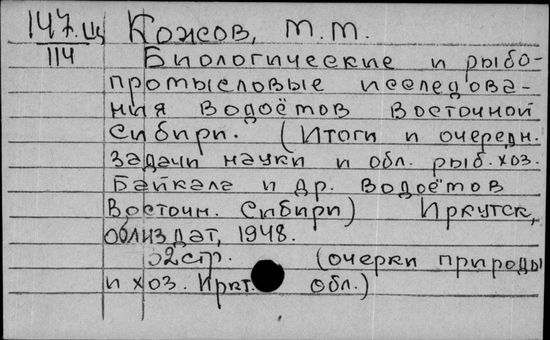 147.щ Кожов, М.М.
114 Биологические и рыбо-
промысловые исследова-
ния водоётов Восточной
Сибири. (Итоги и очередн.
задачи науки и обл. рыб. хоз.
Байкала и др. водоётов
Восточн. Сибири) Иркутск,
облиздат, 1948.
52стр. (очерки природы
и хоз. Иркт. обл.)